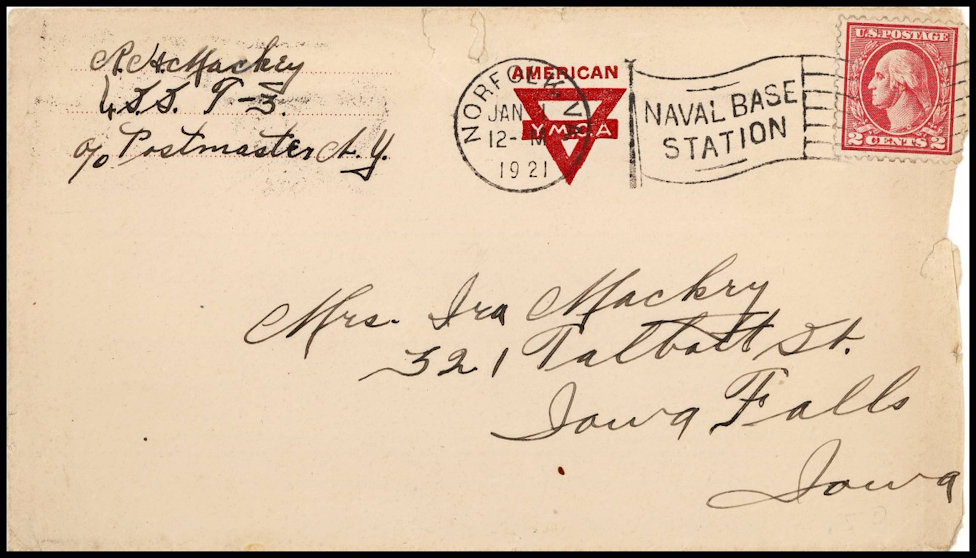 R. H. Mackey
U.S.S. T-3.
c/o Postmaster N.Y.
AMERICAN
YMCA
NORFOLK, VA
JAN
12-M
1921
NAVAL BASE
STATION
U.S. POSTAGE
2 CENTS 2
Mrs. Ira Mackey
321 Talbott St.
Iowa Falls
Iowa